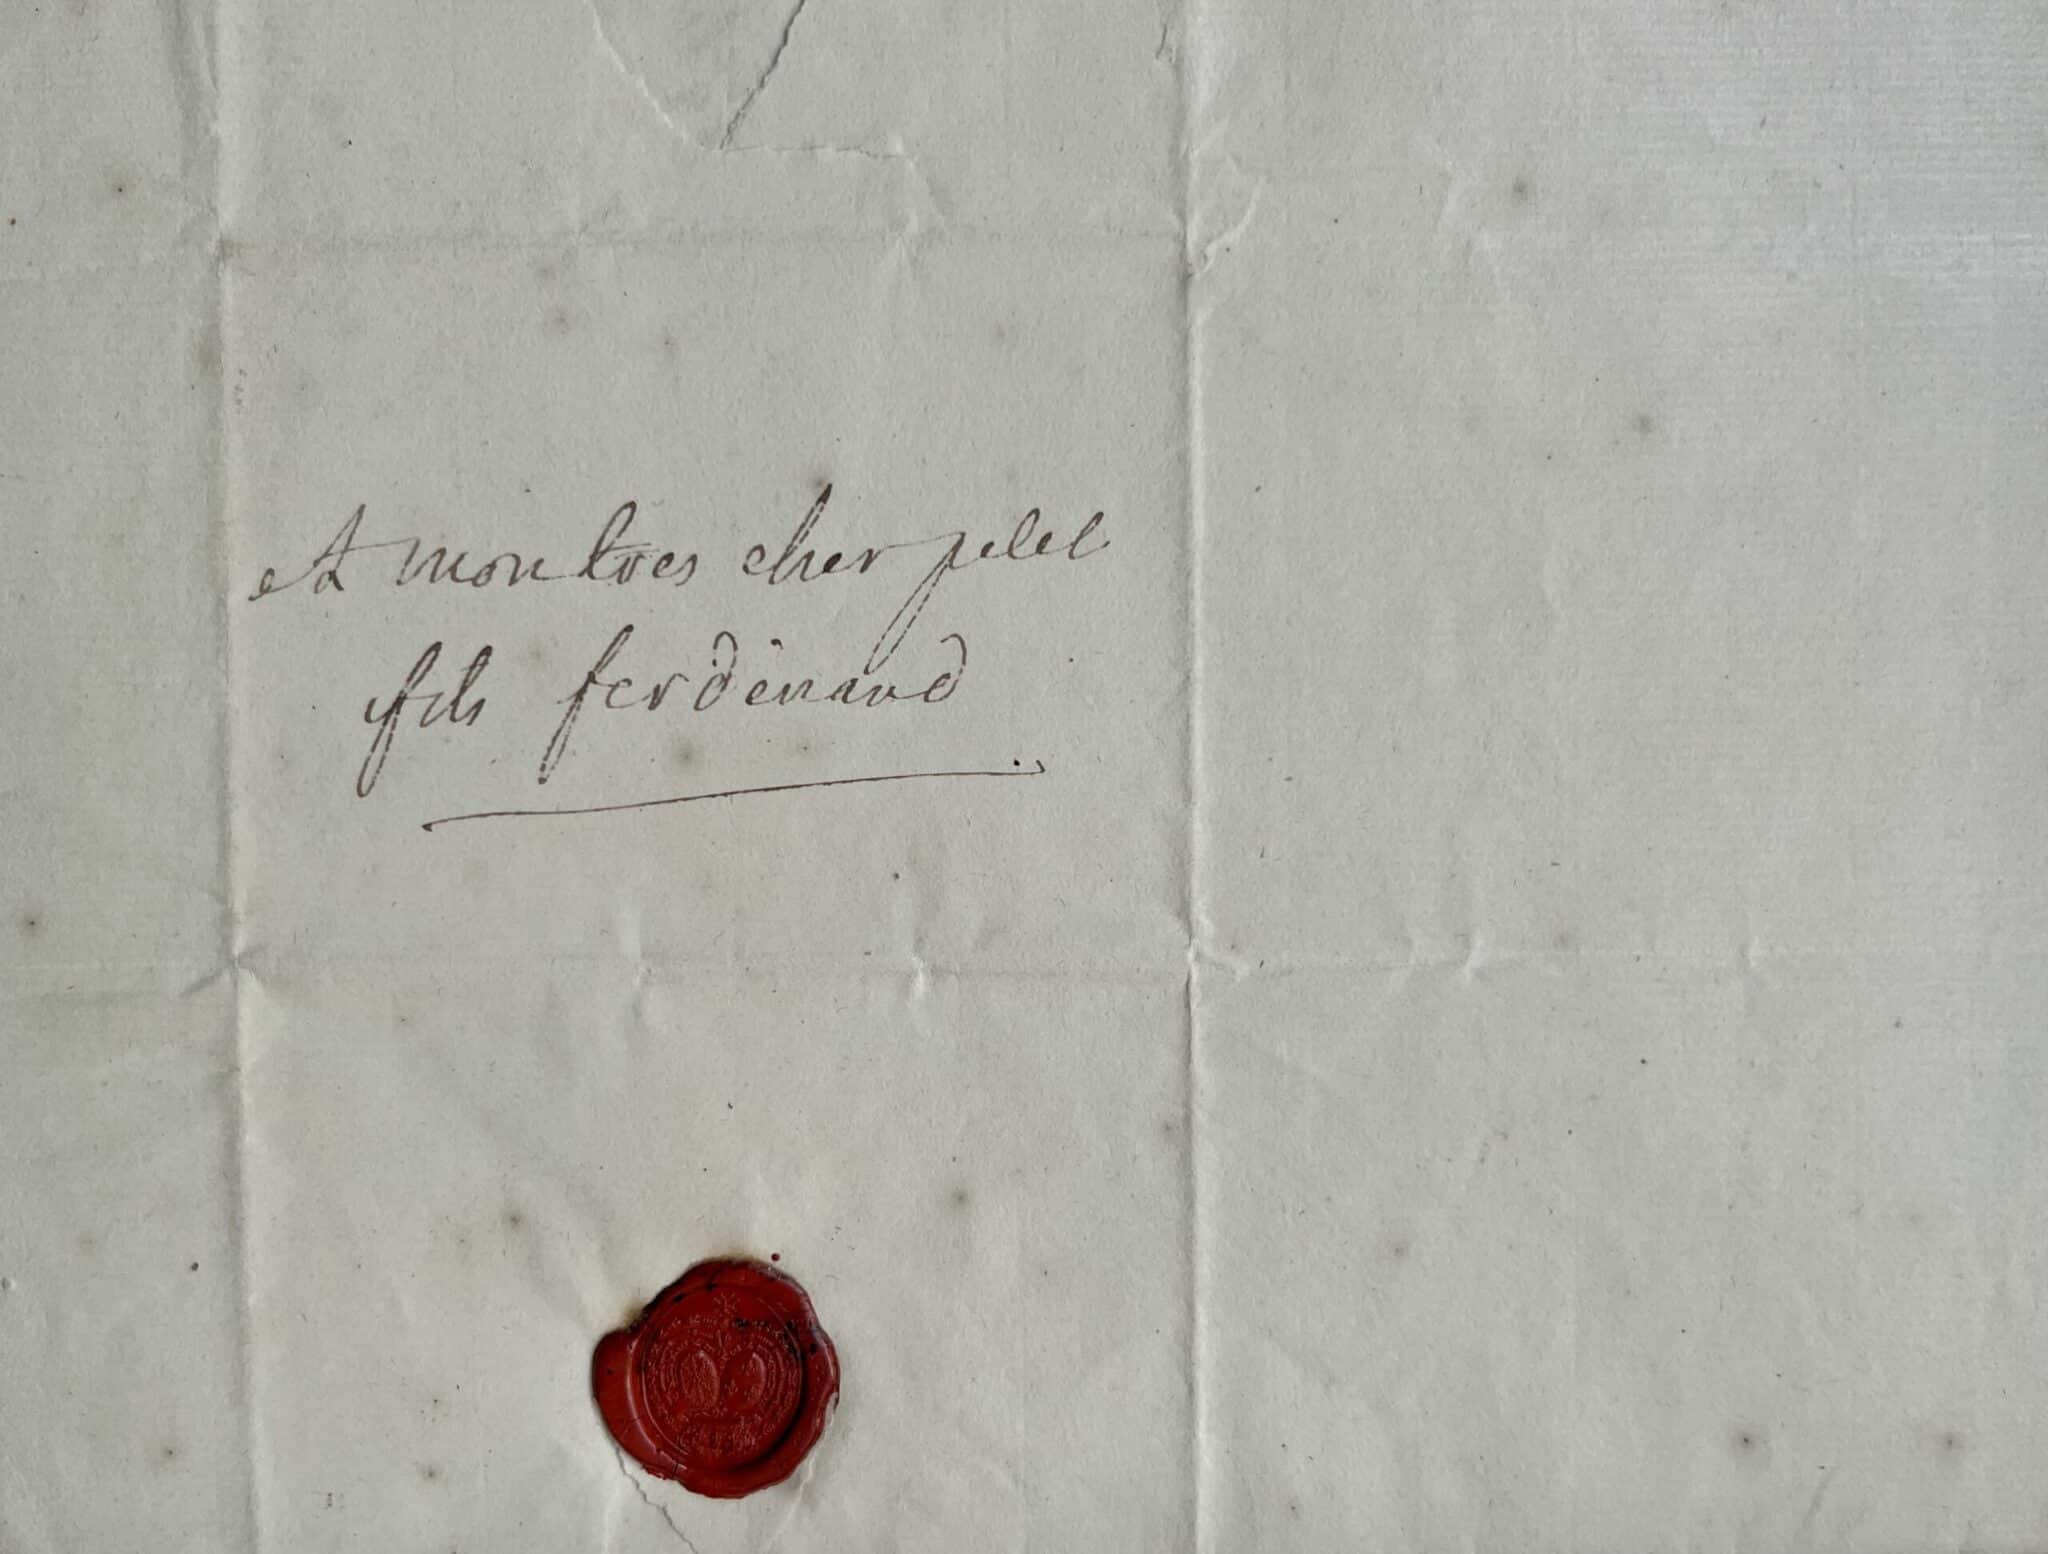 A mon tres cher petit
fils ferdinand